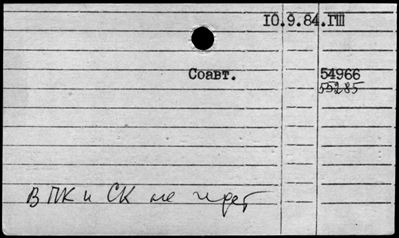 10.9.84.ГПП
Соавт. 54966
55285
В ПК и СК не идет